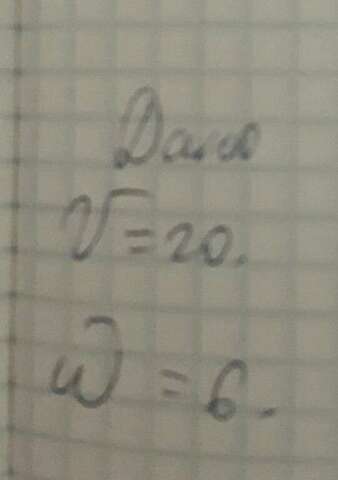 Дано
V = 20.
ω = 6.